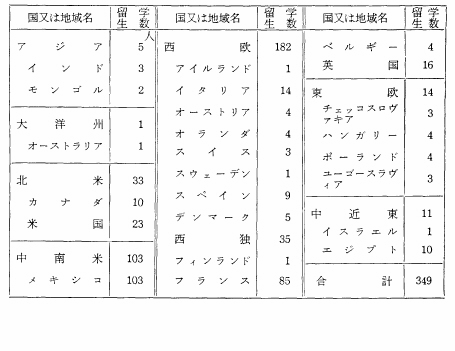 国又は地域名 留学生数
人
アジア 5
インド 3
モンゴル 2
大洋州 1
オーストラリア 1
北米 33
カナダ 10
米国 23
中南米 103
メキシコ 103
国又は地域名 留学生数
西欧 182
アイルランド 1
イタリア 14
オーストリア 4
オランダ 4
スイス 3
スウェーデン 1
スペイン 9
デンマーク 5
西独 35
フィンランド 1
フランス 85
国又は地域名 留学生数
ベルギー 4
英国 16
東欧 14
チェッコスロヴ
ァキア 3
ハンガリー 4
ポーランド 4
ユーゴースラヴ
ィア 3
中近東 11
イスラエル 1
エジプト 10
合計 349